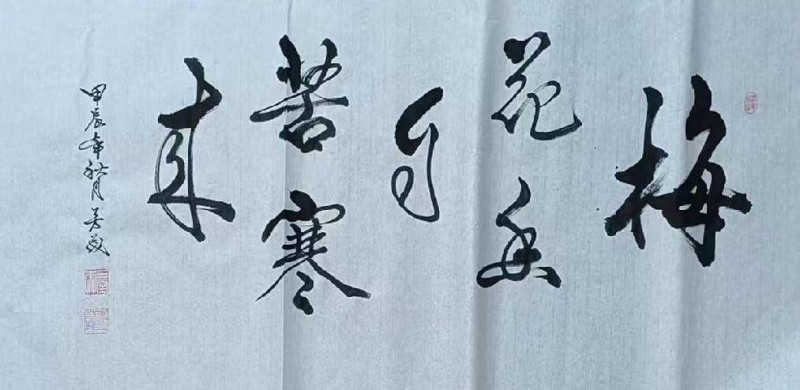 梅
花香
自
苦寒
来
甲辰年秋月芳敬